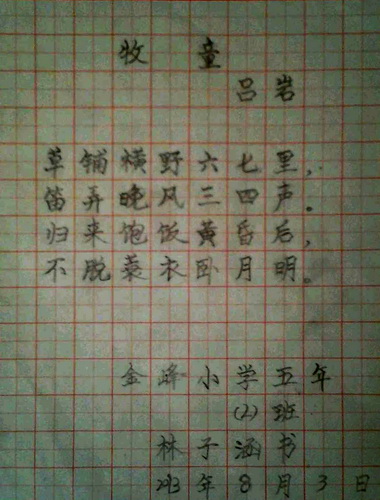 牧童
吕岩
草铺横野六七里,
笛弄晚风三四声。
归来饱饭黄昏后,
不脱蓑衣卧月明。
金峰小学五年
(2)班
林子涵书
年8月3日